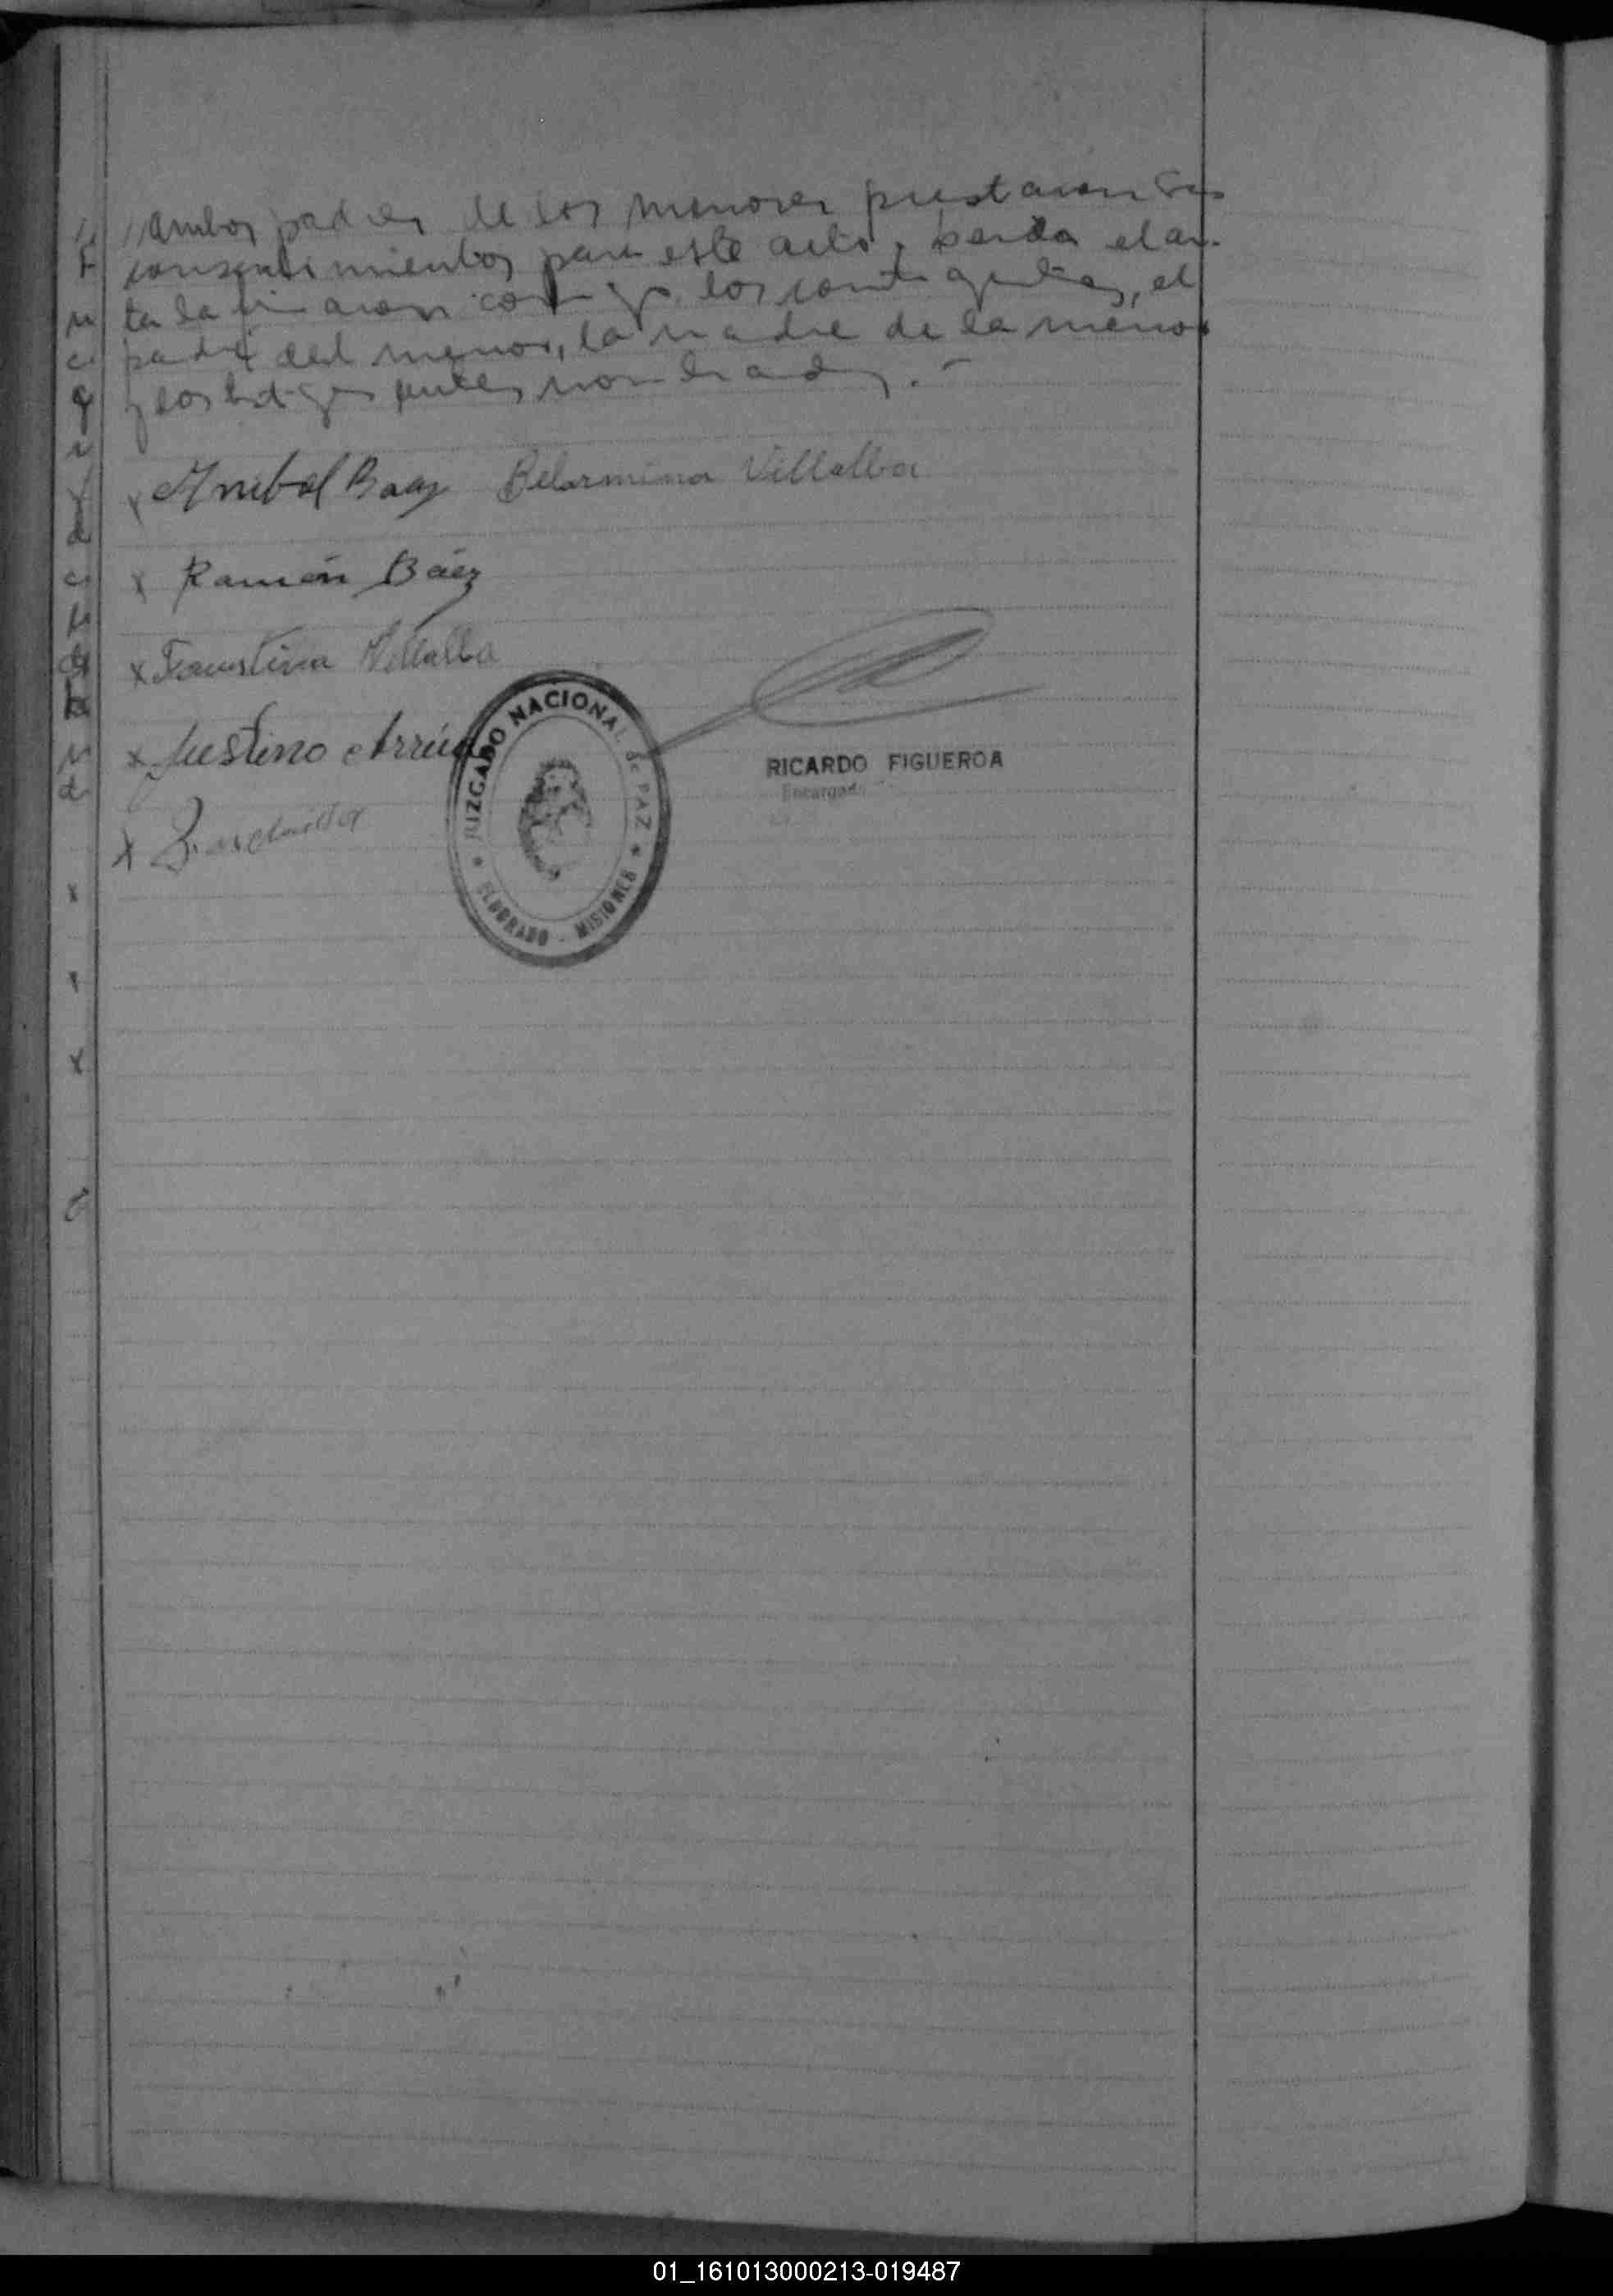 // Ambos padres de los menores prestaron sus
consentimientos para este acto, leida el ac-
ta la firmaron conmigo los contrayentes, el
padre del menor, la madre de la menor
y los testigos antes nombrados.-
x Anibal Baez Belarmina Villalba
x Ramón Báez
x Faustina Villalba
x Justino Arrúa
x
JUZGADO NACIONAL de PAZ
* ELDORADO - MISIONES *
RICARDO FIGUEROA
Encargado
01_161013000213-019487